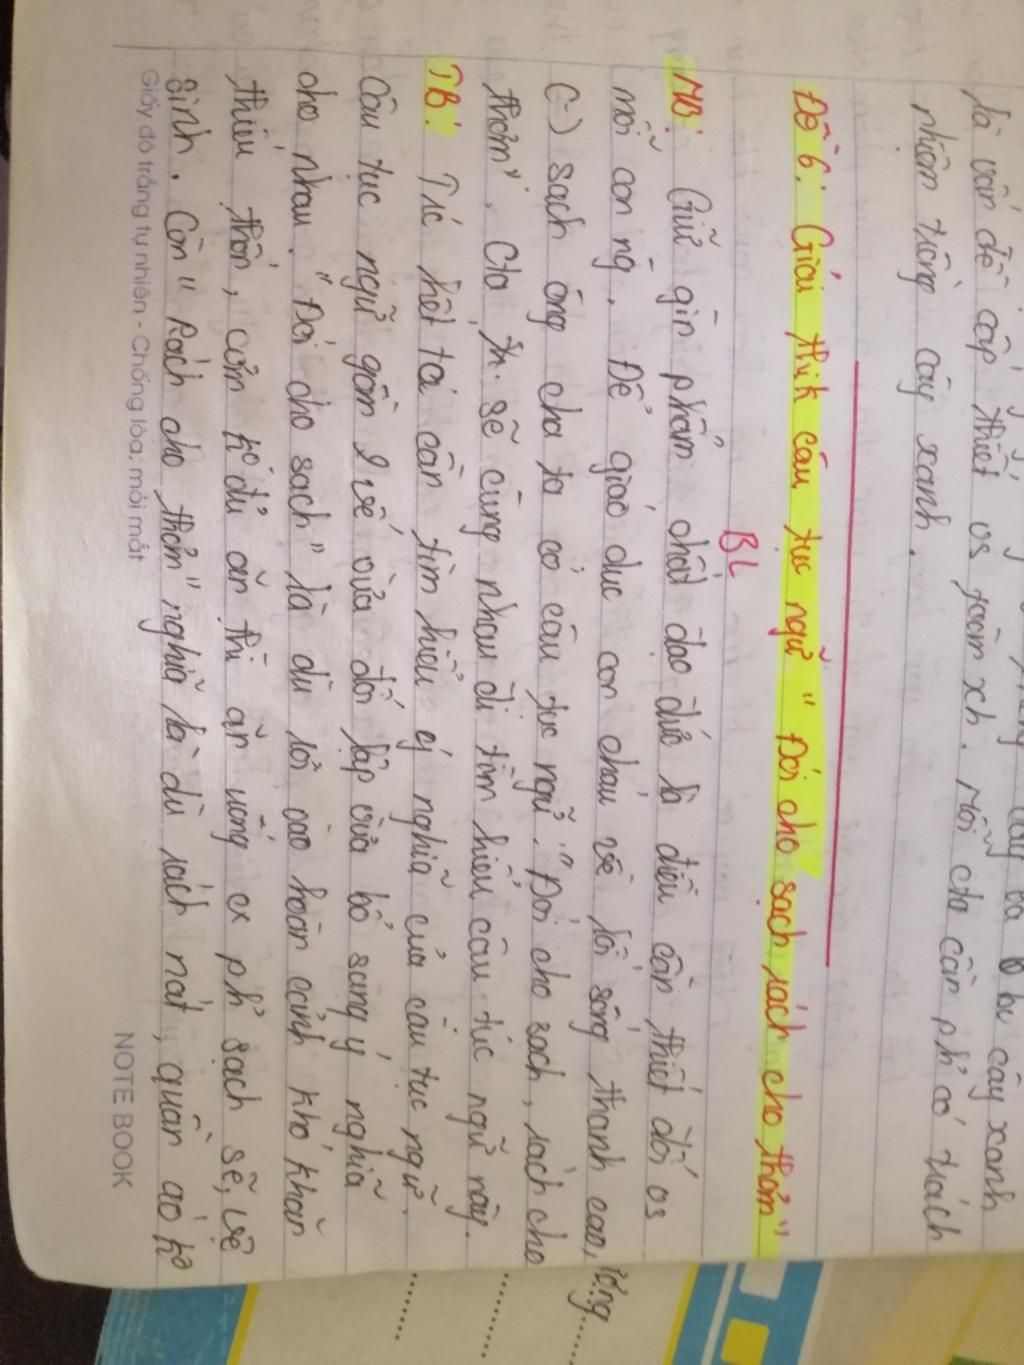 là vấn đề cấp thiết vs toàn xh. Mỗi cta cần ph' có trách
nhiệm trồng cây xanh.
Đề 6: Giải thik câu tục ngữ " Đói cho sạch rách cho thơm"
BL
MB: Giữ gìn phẩm chất đạo đức là điều cần thiết đối vs
mỗi con ng. Để giáo dục con cháu về lối sống thanh cao,
(-) sạch ông cha ta có câu tục ngữ: " Đói cho sạch, rách cho
thơm". Cta sẽ cùng nhau đi tìm hiểu câu tục ngữ này.
TB: Trc hết ta cần tìm hiểu ý nghĩa của câu tục ngữ.
Câu tục ngữ gồm 2 vế vừa đối lập vừa bổ sung ý nghĩa
cho nhau. " Đói cho sạch" là dù rơi vào hoàn cảnh khó khăn
thiếu thốn, cơm ko đủ ăn thì ăn uống cx ph' sạch sẽ, vệ
sinh. Còn " Rách cho thơm" nghĩa là dù rách nát, quần áo ko
Giấy độ trắng tự nhiên - Chống lóa, mỏi mắt
NOTE BOOK